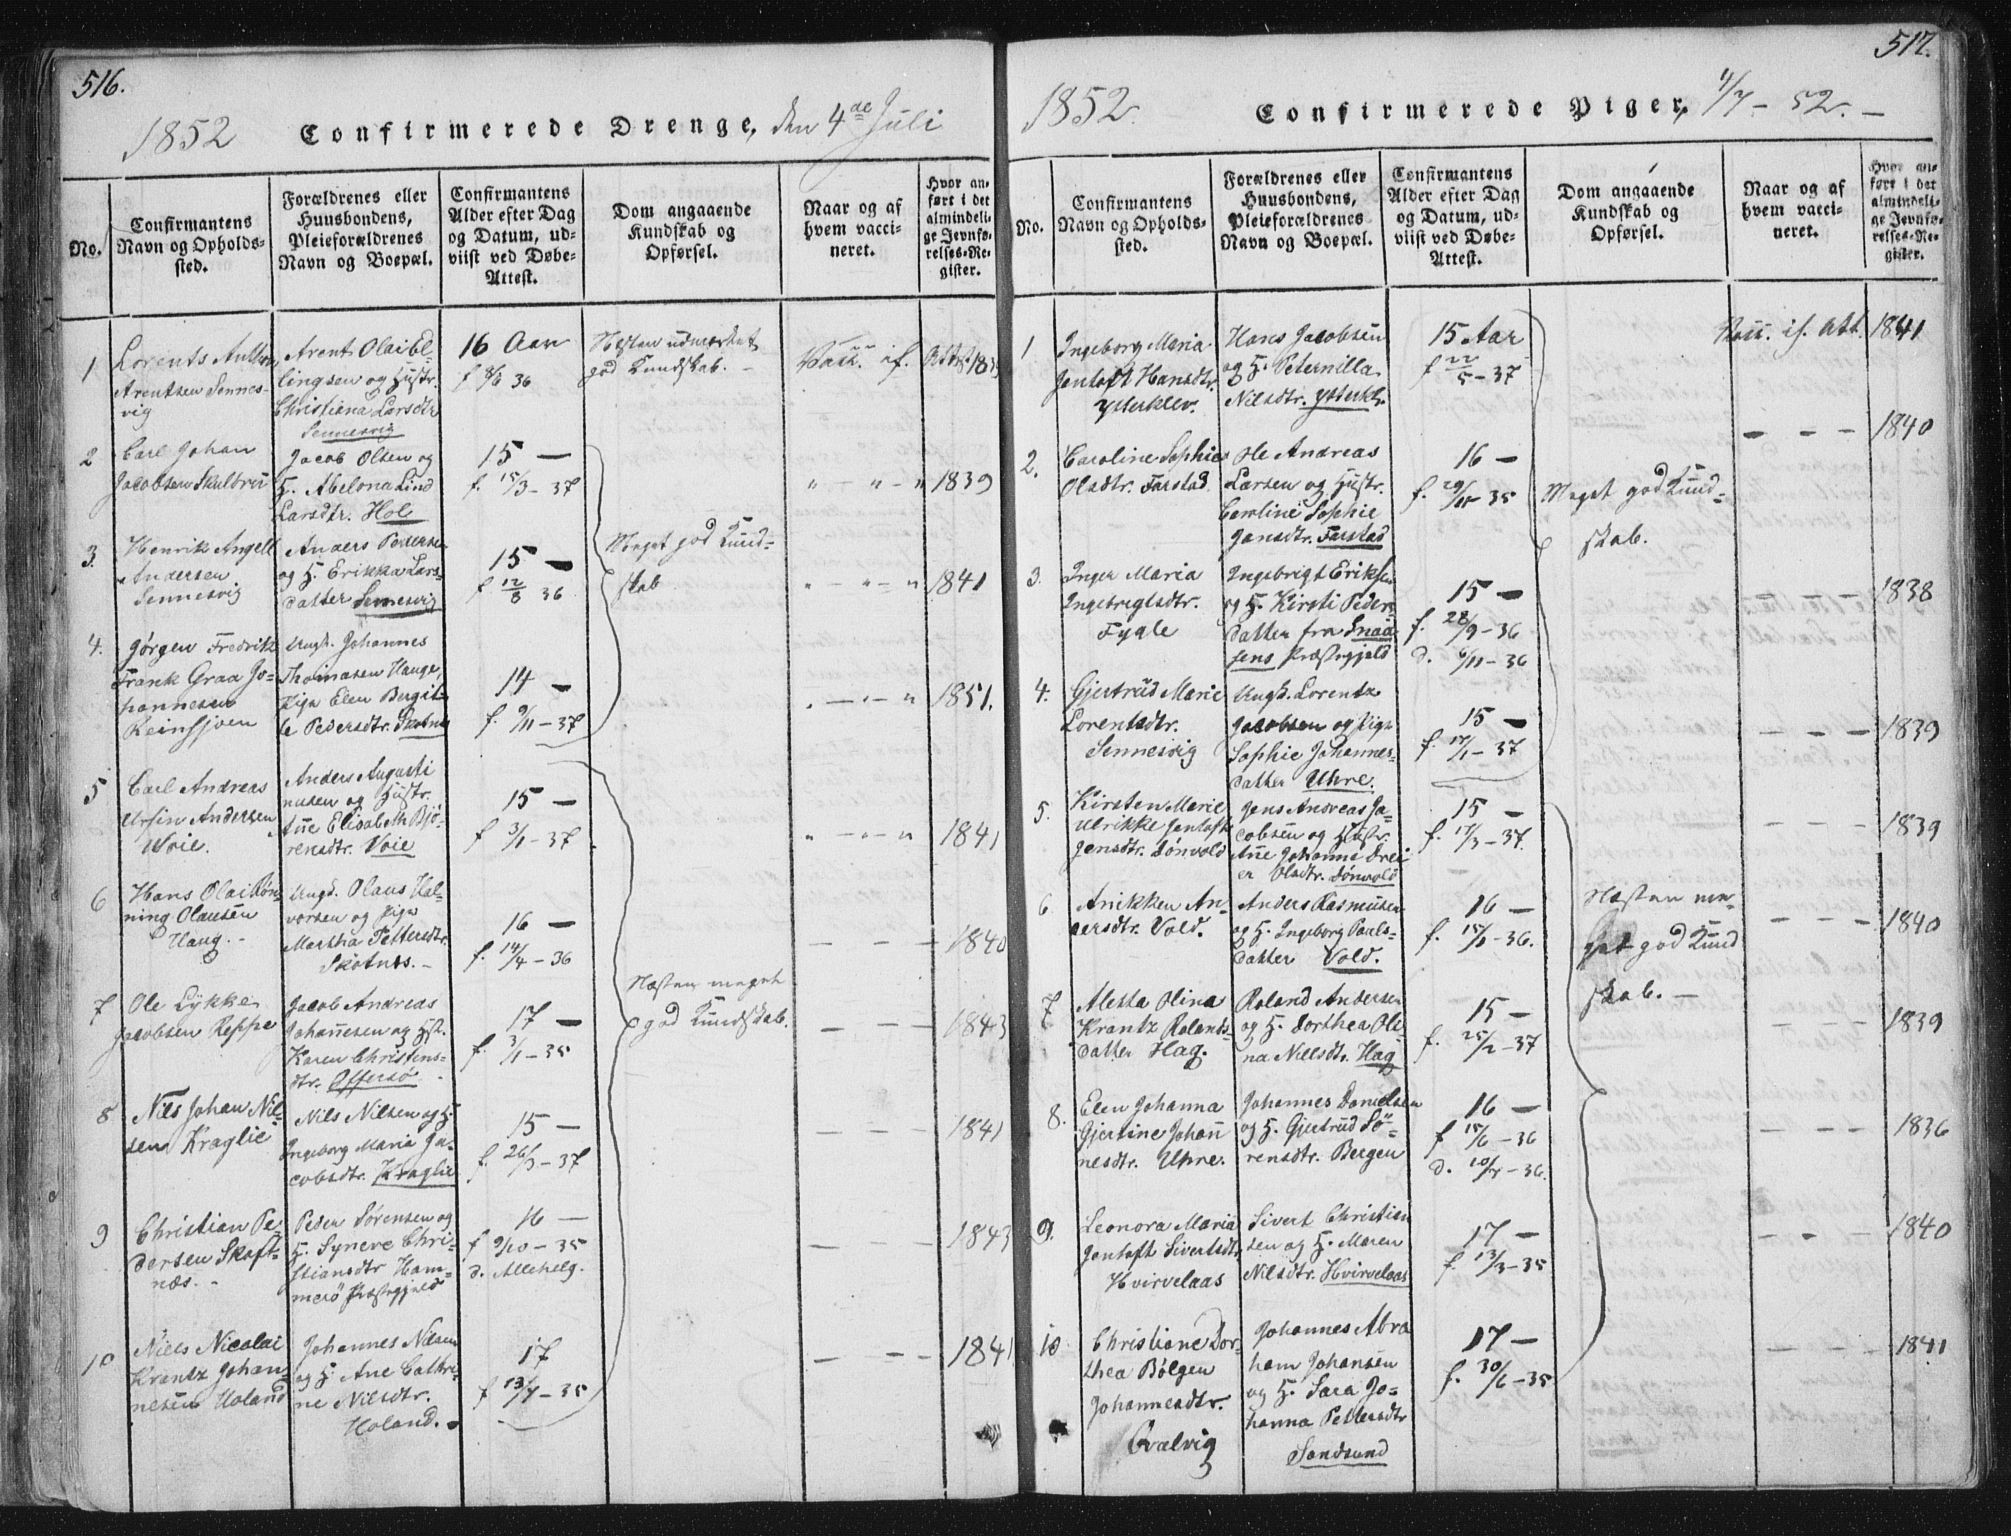 516.
1852 Confirmerede Drenge, den 4de Juli
No.
Confirmantens Navn og Opholds-sted.
Forældrenes eller Huusbondens, Pleieforældrenes Navn og Boepæl.
Confirmantens Alder efter Dag og Datum, ud-viist ved Døbe-Attest.
Dom angaaende Kundskab og Opførsel.
Naar og af hvem vacci-neret.
Hvor an-ført i det almindeli-ge Jevnfø-relses-Re-gister.
1
Lorents Anthon
Arentsen Sennes-
vig
Arent Olai
lingsen og Hustr.
Christiena Larsdtr
Sennesvig
16 Aar
f 8/8 36
Næsten udmærket
god Kundskab. -
Vacc. if. Attst
2
Carl Johan
Jacobsen Skulbrü
Jacob Olsen og
H. Abelona Lind
Larsdtr. Hol
15 -
f. 15/3 - 37
" - " - " 1839
3.
Henrik Angell
Andersen
Sennesvig
Anders Pedersen
og H. Erikka Lars-
datter Sennesvig
15 -
f 12/8 36
Meget god Kund-
skab
" - " - " 1841
4.
Jørgen Fredrik
Frank Graa Jo-
hannesen
Reinsjoen
Ungk. Johannes
Thomasen Hauge,
Pige Elen Bergit-
te Pedersdtr. Skotnes
14 -
f. 9/11 - 37
" - " - " 1851.
5
Carl Andreas
Ursin Andersen
Voie.
Anders Augusti
nusen og Hustr.
Ane Elisabth Bjø-
rensdtr. Voie
15 -
f 3/1 - 37
" - " - " 1841
6
Hans Olai Røn-
ning Olausen
Haug. -
Ungk. Olaus Hal-
vorsen og Pige
Martha Pettersdtr.
Skotnes. -
16 -
f. 14/4 - 36
- - - 1840
7
Ole Lykke
Jacobsen Reppe
Jacob Andreas
Johannesen og Hst.
Karen Christens-
dtr. Offersø
17 -
f. 3/1 - 35
Næsten meget
god Kundskab.
- - - 1843
8
Nils Johan Nil-
sen Kraglie
Nils Nilsen og H.
Ingeborg Maria Ja-
cobsdtr. Kraglie
15 -
f. 26/3 - 37
- - - 1841
9
Christian Pe
dersen Skaft-
næs. -
Peder Sørensen og
H. Syneve Chri-
stiansdtr Ham-
merø Præstegjeld
16 -
f 9/10 - 35
d. Allehelg.
- - - 1843
10
Niels Nicolai
Krantz Johan-
nesen Holand
Johannes Nilsen
og H. Ane Cathri-
ne Nilsdtr.
Holand. -
17
f 13/7 - 35
- - - 1841
517.
1852. Confirmerede Piger, 4/7 - 52. -
No.
Confirmantens Navn og Opholds-sted.
Forældrenes eller Huusbondens, Pleieforældrenes Navn og Boepæl.
Confirmantens Alder efter Dag og Datum, ud-viist ved Døbe-Attest.
Dom angaaende Kundskab og Opførsel.
Naar og af hvem vacci-neret.
Hvor an-ført i det almindeli-ge Jevnfø-relses-Re-gister.
1
Ingeborg Maria
Jentoft Hansdtr.
Ytterklev.
Hans Jacobsen
og H. Peternilla
Nilsdtr. Ytterkl.
15 Aar
f 22/5 - 37
Vacc. if. Att. 1841
2.
Caroline Sophie
Olsdtr. Farstad
Ole Andreas
Larsen og Hustr.
Caroline Sophie
Jansdtr. Farstad
16 -
Meget god Kund-
skab.
- - - 1840
3.
Inger Maria
Ingebregtsdtr.
Fygle
Ingebrigt Eriksen
og H. Kirsti Peders
datter fra Snaa
sens Præstegjeld
15 -
f. 28/9 - 36
d. 6/11 - 36
1838
4.
Gjertrud Marie
Lorentsdtr.
Sennesvig
Ungk. Lorentz
Jacobsen og Pige
Sophie Johannes-
datter Uhre.
15 -
f. 17/1 - 37
- - - 1839
5.
Kirsten Marie
Ulrikke Jentoft
Jensdtr. Dønvold
Jens Andreas Ja-
cobsen og Hustr.
Ane Johanna Drei
er Olsdtr. Dønvold
15 -
f. 17/3 - 37.
- - - 1839
6
Anikken An-
dersdtr. Vold.
Anders Rasmusen
og H. Ingeborg Pauls-
datter Vold.
16 -
Næsten me-
get god Kund
skab. -
- - - 1840
7
Aletta Olina
Krantz Rolands-
datter Hag.
Roland Andersen
og H. Dorthea Oli-
na Nielsdtr. Hag
15 -
f. 25/2 - 37
- - - 1839
8.
Elen Johanna
Gjertine Johan
nesdtr. Uhre.
Johannes Danielsen
og H. Gjertrud Sö-
rensdtr. Bergen
16 -
f 15/6 - 36
- - - 1836
9.
Leonora Maria
Jentoft Sivertsdtr.
Hvirvelaas
Sivert Christian
sen og H. Maren
Nilsdtr. Hvirvelaas
17 -
f. 13/3 - 35
- - - 1840
10
Christiane Dor-
thea Bølgen
Johannesdtr.
Qvalvig
Johannes Abra
ham Johansen
og H. Sara Jo-
hanna Pettersdtr
Sandsund
17 -
f. 30/6 - 35
- - - 1841